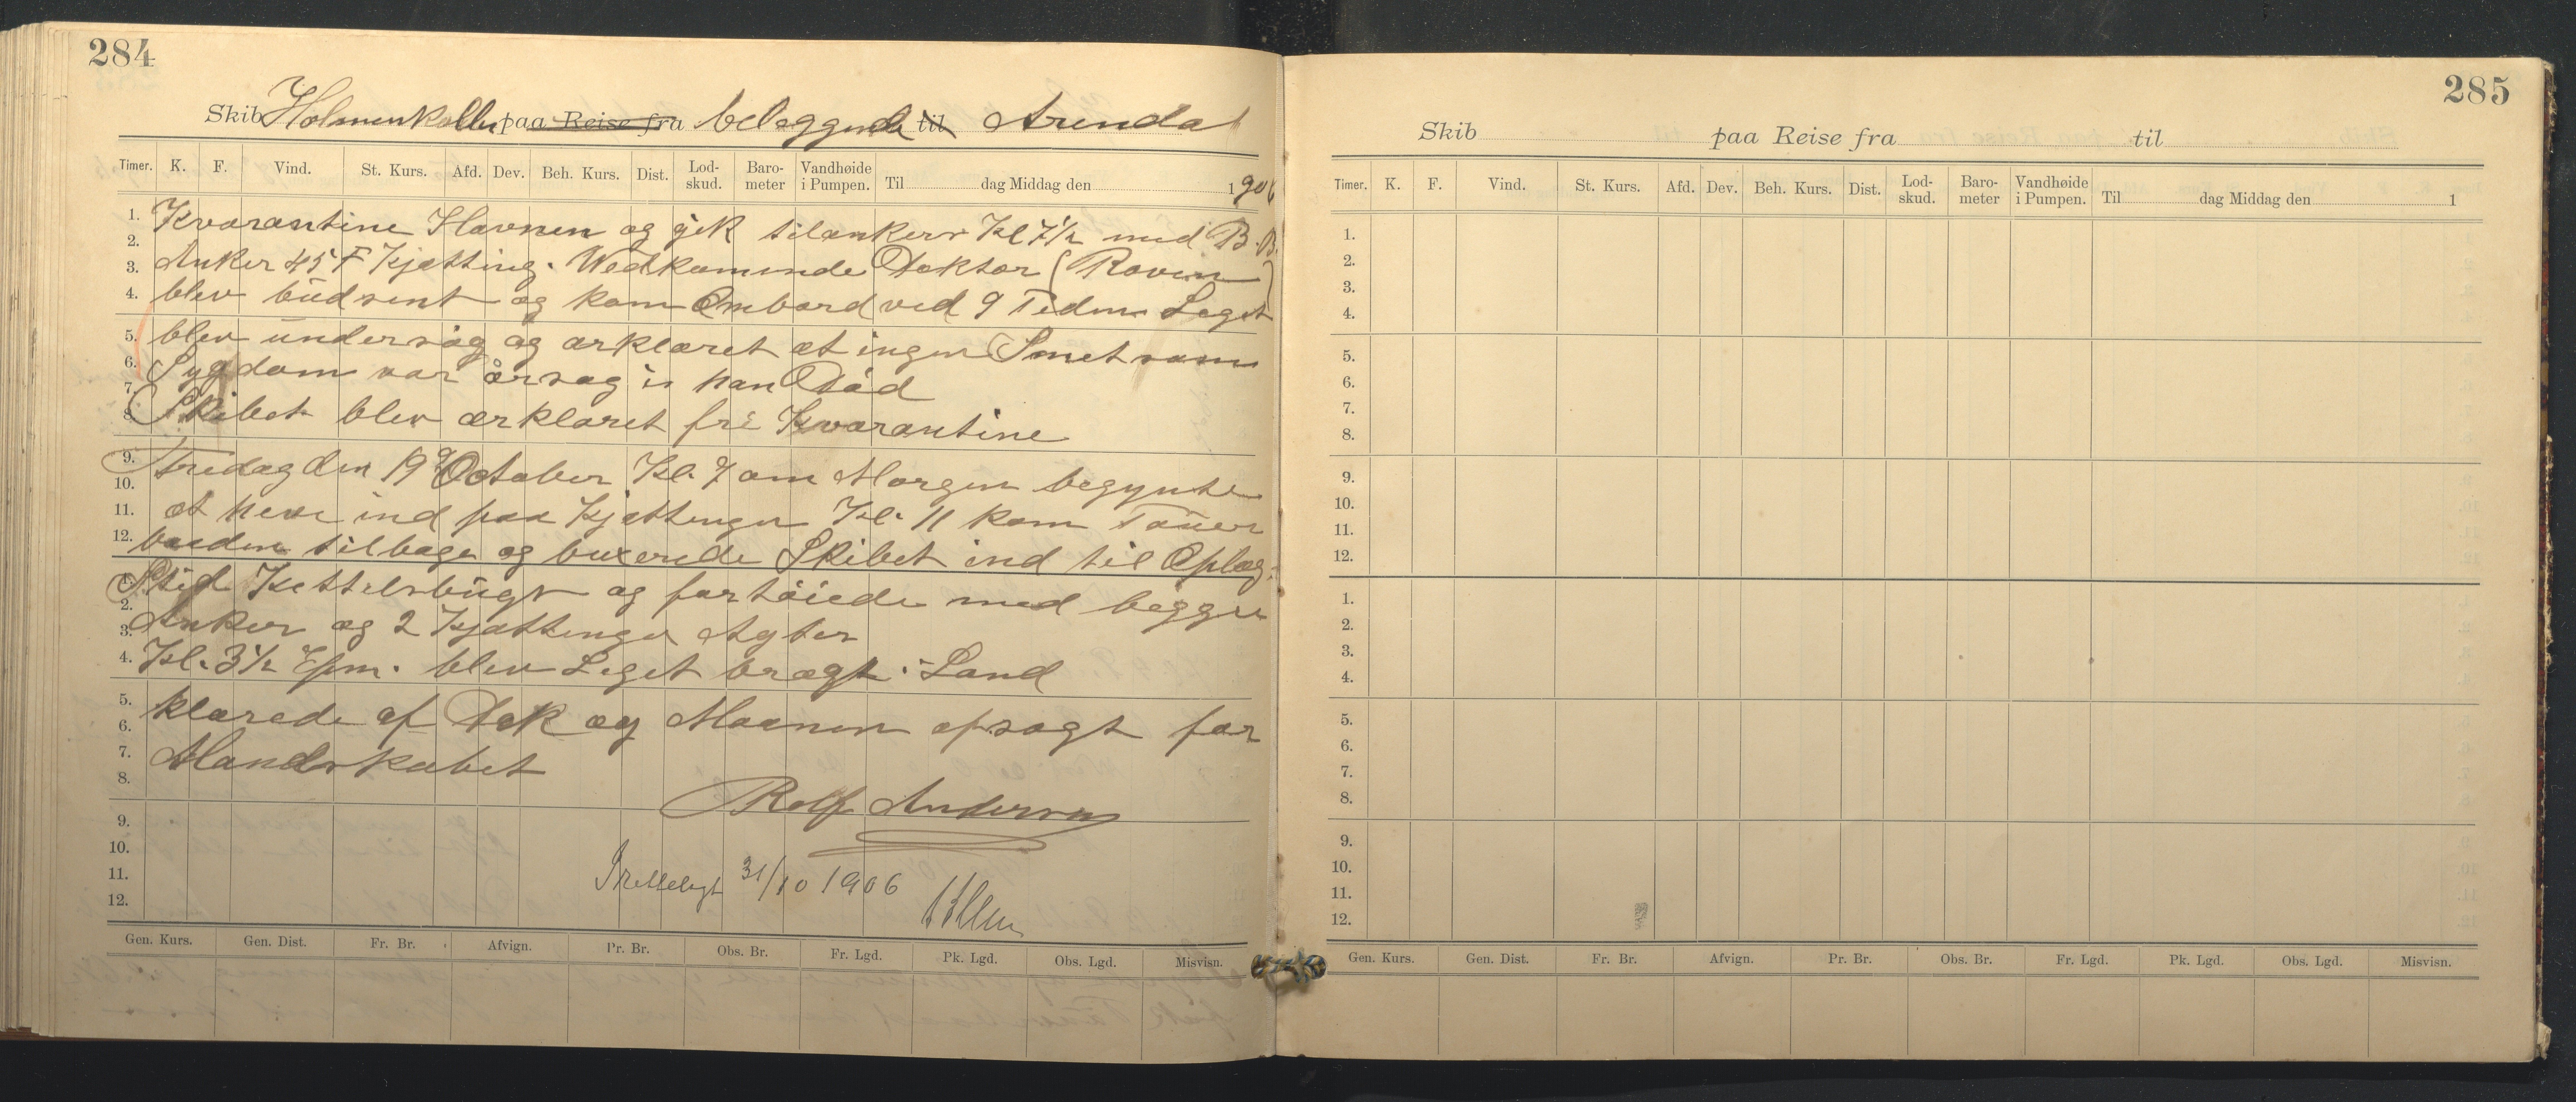 284
Skib Holmenkollen paa Reise fra beleggende til Arendal
Timer. K. F. Vind. St. Kurs. Afd. Dev. Beh. Kurs. Dist. Lod-skud. Baro-meter Vandhøide i Pumpen. Til dag Middag den 1906
1. Kvarantine Havnen og gik tilankers Kl 7½ med B.B.
2.
3. Anker 45 F Kjætting. Wedkommende Doktor (Roven)
4. blev budsent og kom Ombord ved 9 Tiden Leget
5. blev undersøg og ærklæret at ingen Smetsom
6. Sygdom var årsag i han Død
7.
8. Skibet blev ærklæret fri Kvarantine
9. Fredag den 19de October Kl. 7 om Morgen begynte
10.
11. at heve ind paa Kjættingen Kl. 11 kom Tauer
12. baaden tilbage og buxerede Skibet ind til Oplag
1. Sted Kettelsbugt og fortöiede med begge
2.
3. Anker og 2 Kjættinger Agter
4. Kl. 3½ Epm. blev Leget bragt i Land
5. klarede af Dek og Maanen opsagt for
6.
7. Mandskabet
8. Rolf Andersen
9.
10.
11. 31/10 1906
12.
Gen. Kurs. Gen. Dist. Fr. Br. Afvign. Pr. Br. Obs. Br. Fr. Lgd. Pk. Lgd. Obs. Lgd. Misvisn.
285
Skib paa Reise fra til
Timer. K. F. Vind. St. Kurs. Afd. Dev. Beh. Kurs. Dist. Lod-skud. Baro-meter Vandhøide i Pumpen. Til dag Middag den 1
1.
2.
3.
4.
5.
6.
7.
8.
9.
10.
11.
12.
1.
2.
3.
4.
5.
6.
7.
8.
9.
10.
11.
12.
Gen. Kurs. Gen. Dist. Fr. Br. Afvign. Pr. Br. Obs. Br. Fr. Lgd. Pk. Lgd. Obs. Lgd. Misvisn.